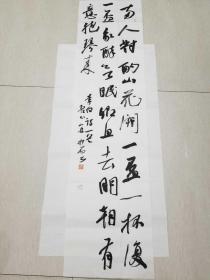 两人對酌山花開一盃一杯復
一盃我醉欲眠卿且去明朝有
意抱琴来
李白诗一首